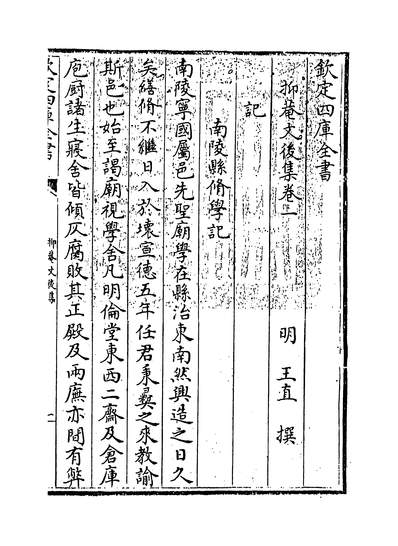 欽定四庫全書
抑菴文後集卷一
明 王直 撰
記
南陵縣脩學記
南陵寧國屬邑先聖廟學在縣治東南然興造之日久
矣繕脩不繼日入於壞宣德五年任君秉彛之來教諭
斯邑也始至謁廟視學舍凡明倫堂東西二齋及倉庫
庖厨諸生寢舍皆傾仄腐敗其正殿及兩廡亦間有弊
欽定四庫全書
抑菴文後集
一